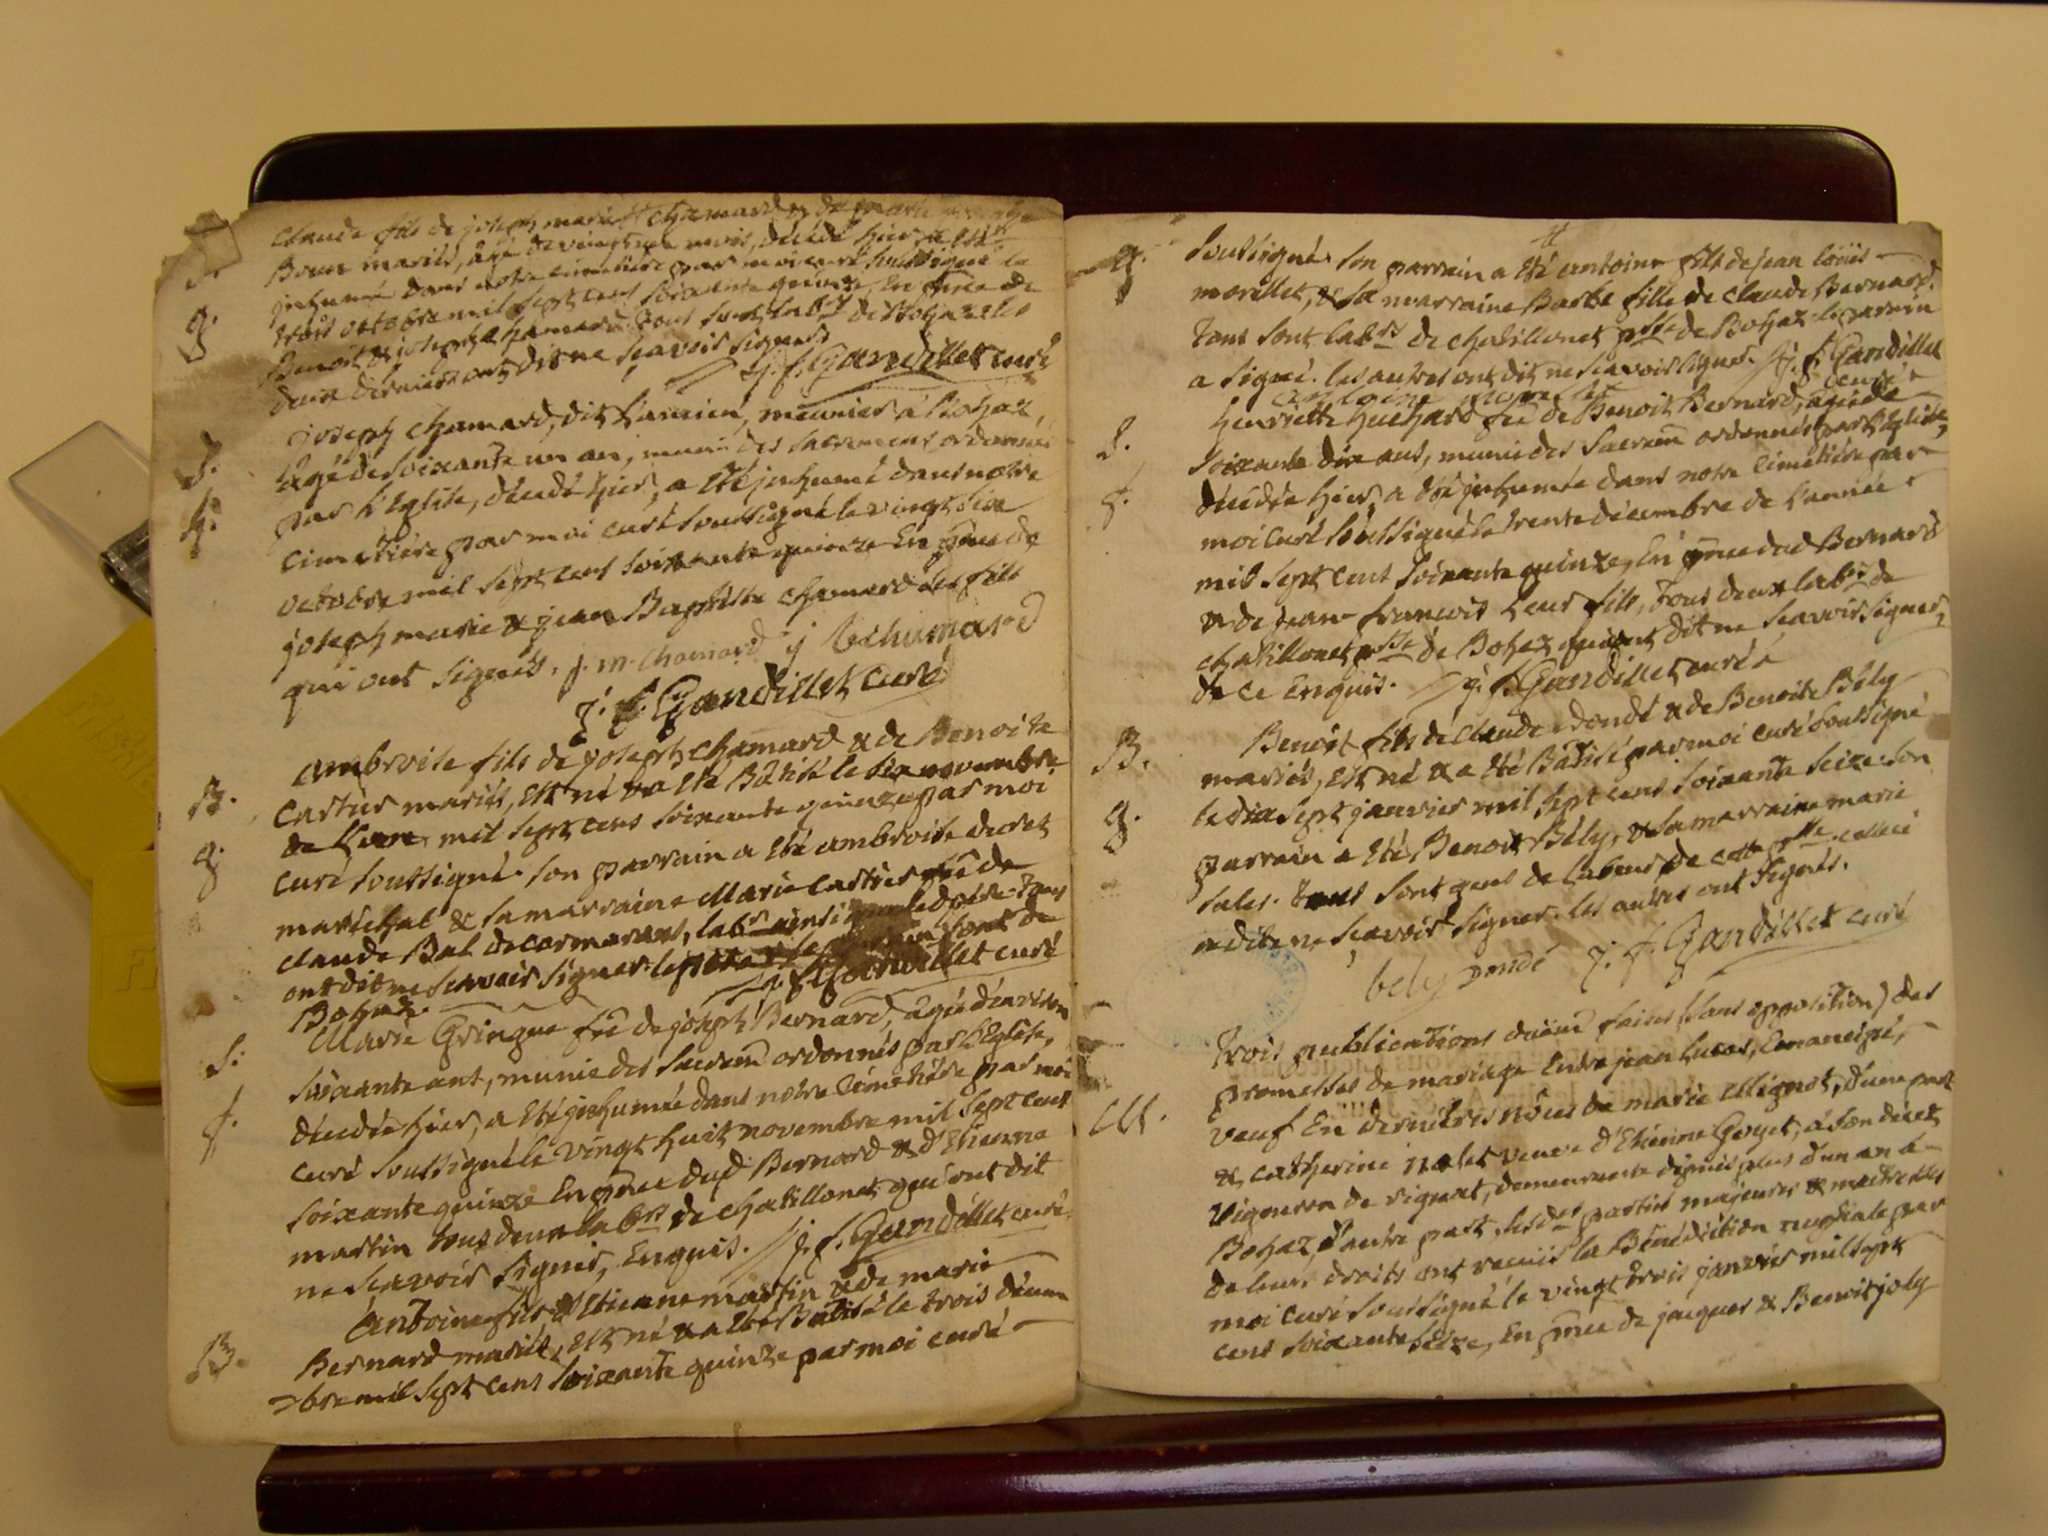 claude fils de joseph marie chamard & de marie
Boun mariés, âgé de vingt un mois, décédé hier, a été
S.
inhumé dans notre cimetière par moi curé soussigné le
trois octobre mil sept cens soixante quinze, En pnce de
g.
Benoit & joseph chamard tous sont labrs de Bohaz les
deux derniers ont dit ne sçavoir signer
j. f. Gandillet curé
joseph chamard, dit Damien, meunier à Bohaz,
S.
âgé de soixante un an, muni des sacremens ordonnés
par L'Eglise, décédé hier, a été inhumé dans notre
g.
cimetière par moi curé soussigné le vingt six
octobre mil sept cens soixante quinze En pnce de
joseph marie & jean Baptiste chamard ses fils
qui ont signés. j. m. chamard j b chumard
j. f. Gandillet curé
ambroise fils de joseph chamard & de Benoite
B.
Castier mariés, est né & a été Bâtisé le six novembre
de L'ann mil sept cens soixante quinze par moi
g.
curé soussigné. son parrain a été ambroise decret
maréchal & sa marraine Marie Castier fe de
claude Bal de cormarans, labr ainsi que le d père. tous
ont dit ne sçavoir signer. le père & le parrain sont de
Bohaz.
j. f. Gandillet curé
Marie Gringue fe de joseph Bernard, âgée d'environ
S.
soixante ans, munie des sacrem ordonnés par L'Eglise,
décédée hier, a été inhumée dans notre cimetière par moi
f.
curé soussigné le vingt huit novembre mil sept cens
soixante quinze En pnce dud Bernard & d'Etienne
martin tous deux labrs de chatillonet qui ont dit
ne sçavoir signer, Enquis. j. f. Gandillet curé
antoine fils d'Etienne martin & de marie
B.
Bernard mariés, est né & a été Bâtisé le trois décem
=bre mil sept cens soixante quinze par moi curé
g.
soussigné. son parrain a été antoine fils de jean loüis
morillet, & sa marraine Barbe fille de claude Bernard.
tous sont labrs de chatillonet psse de Bohaz. le parrain
a signé. les autres ont dit ne sçavoir signer. j. f. Gandillet
curé
antoine
henriette huchard fe de Benoit Bernard, âgée de
S.
soixante dix ans, munie des sacrem ordonnés par L'Eglise,
décédée hier, a été inhumée dans notre cimetière par
f.
moi curé soussigné le trente décembre de L'année
mil sept cent soixante quinze, En pnce dud Bernard
& de jean francois leur fils, tous deux labrs de
chatillonet psse de Bohaz qui ont dit ne sçavoir signer,
de ce Enquis. j. f. Gandillet curé
Benoit fils de claude dondé & de Benoite Bély
B.
mariés, est né & a été Bâtisé par moi curé soussigné
le dix sept janvier mil sept cens soixante seize. son
g.
parrain a été Benoit Bély, & sa marraine marie
sales. tous sont gens de labeur de cette psse. celleci
a dit ne sçavoir signer. les autres ont signés.
bely dondé j. f. Gandillet curé
Trois publications duëm faites (sans opposition) des
promesses de mariage Entre jean Lucas, Emancipé,
M.
veuf En dernières nôces de marie Mignot, d'une part
& catherine nalet veuve d'Etienne Goyet, à son décès
vigneron de rignat, demeurante depuis plus d'un an à
Bohaz, d'autre part. lesdes parties majeures & maitresses
de leurs droits ont reçuës la Bénédiction nuptiale par
moi curé soussigné le vingt trois janvier mil sept
cens soixante seize, En pnce de jacques & Benoit joly